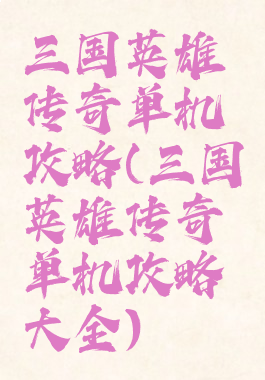 三国英雄
传奇单机
攻略(三国
英雄传奇
单机攻略
大全)